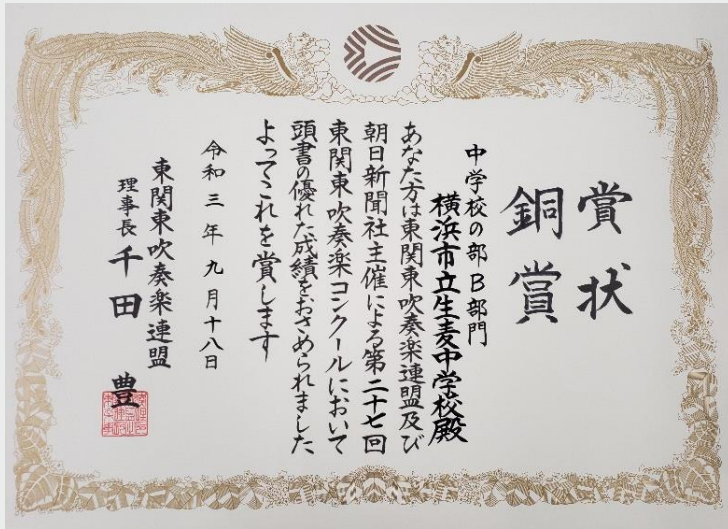 賞状
銅賞
中学校の部 B部門
横浜市立生麦中学校殿
あなた方は東関東吹奏楽連盟及び
朝日新聞社主催による第二十七回
東関東吹奏楽コンクールにおいて
頭書の優れた成績をおさめられました
よってこれを賞します
令和三年九月十八日
東関東吹奏楽連盟
理事長 千田 豊